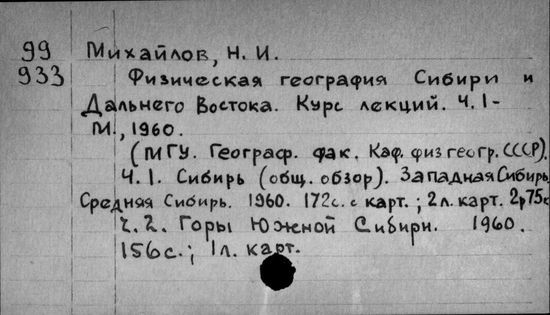 99 Михайлов, Н. И.
933 Физическая география Сибири и
Дальнего Востока. Курс лекций. Ч. I-
М., 1960.
(МГУ. Географ. фак. Каф. физ геогр. СССР).
Ч. I. Сибирь (общ. обзор). Западная Сибирь,
Средняя Сибирь. 1960. 172с. с карт.; 2 л. карт. 2р75к
Ч. 2. Горы Южной Сибири. 1960.
156с.; 1л. карт.